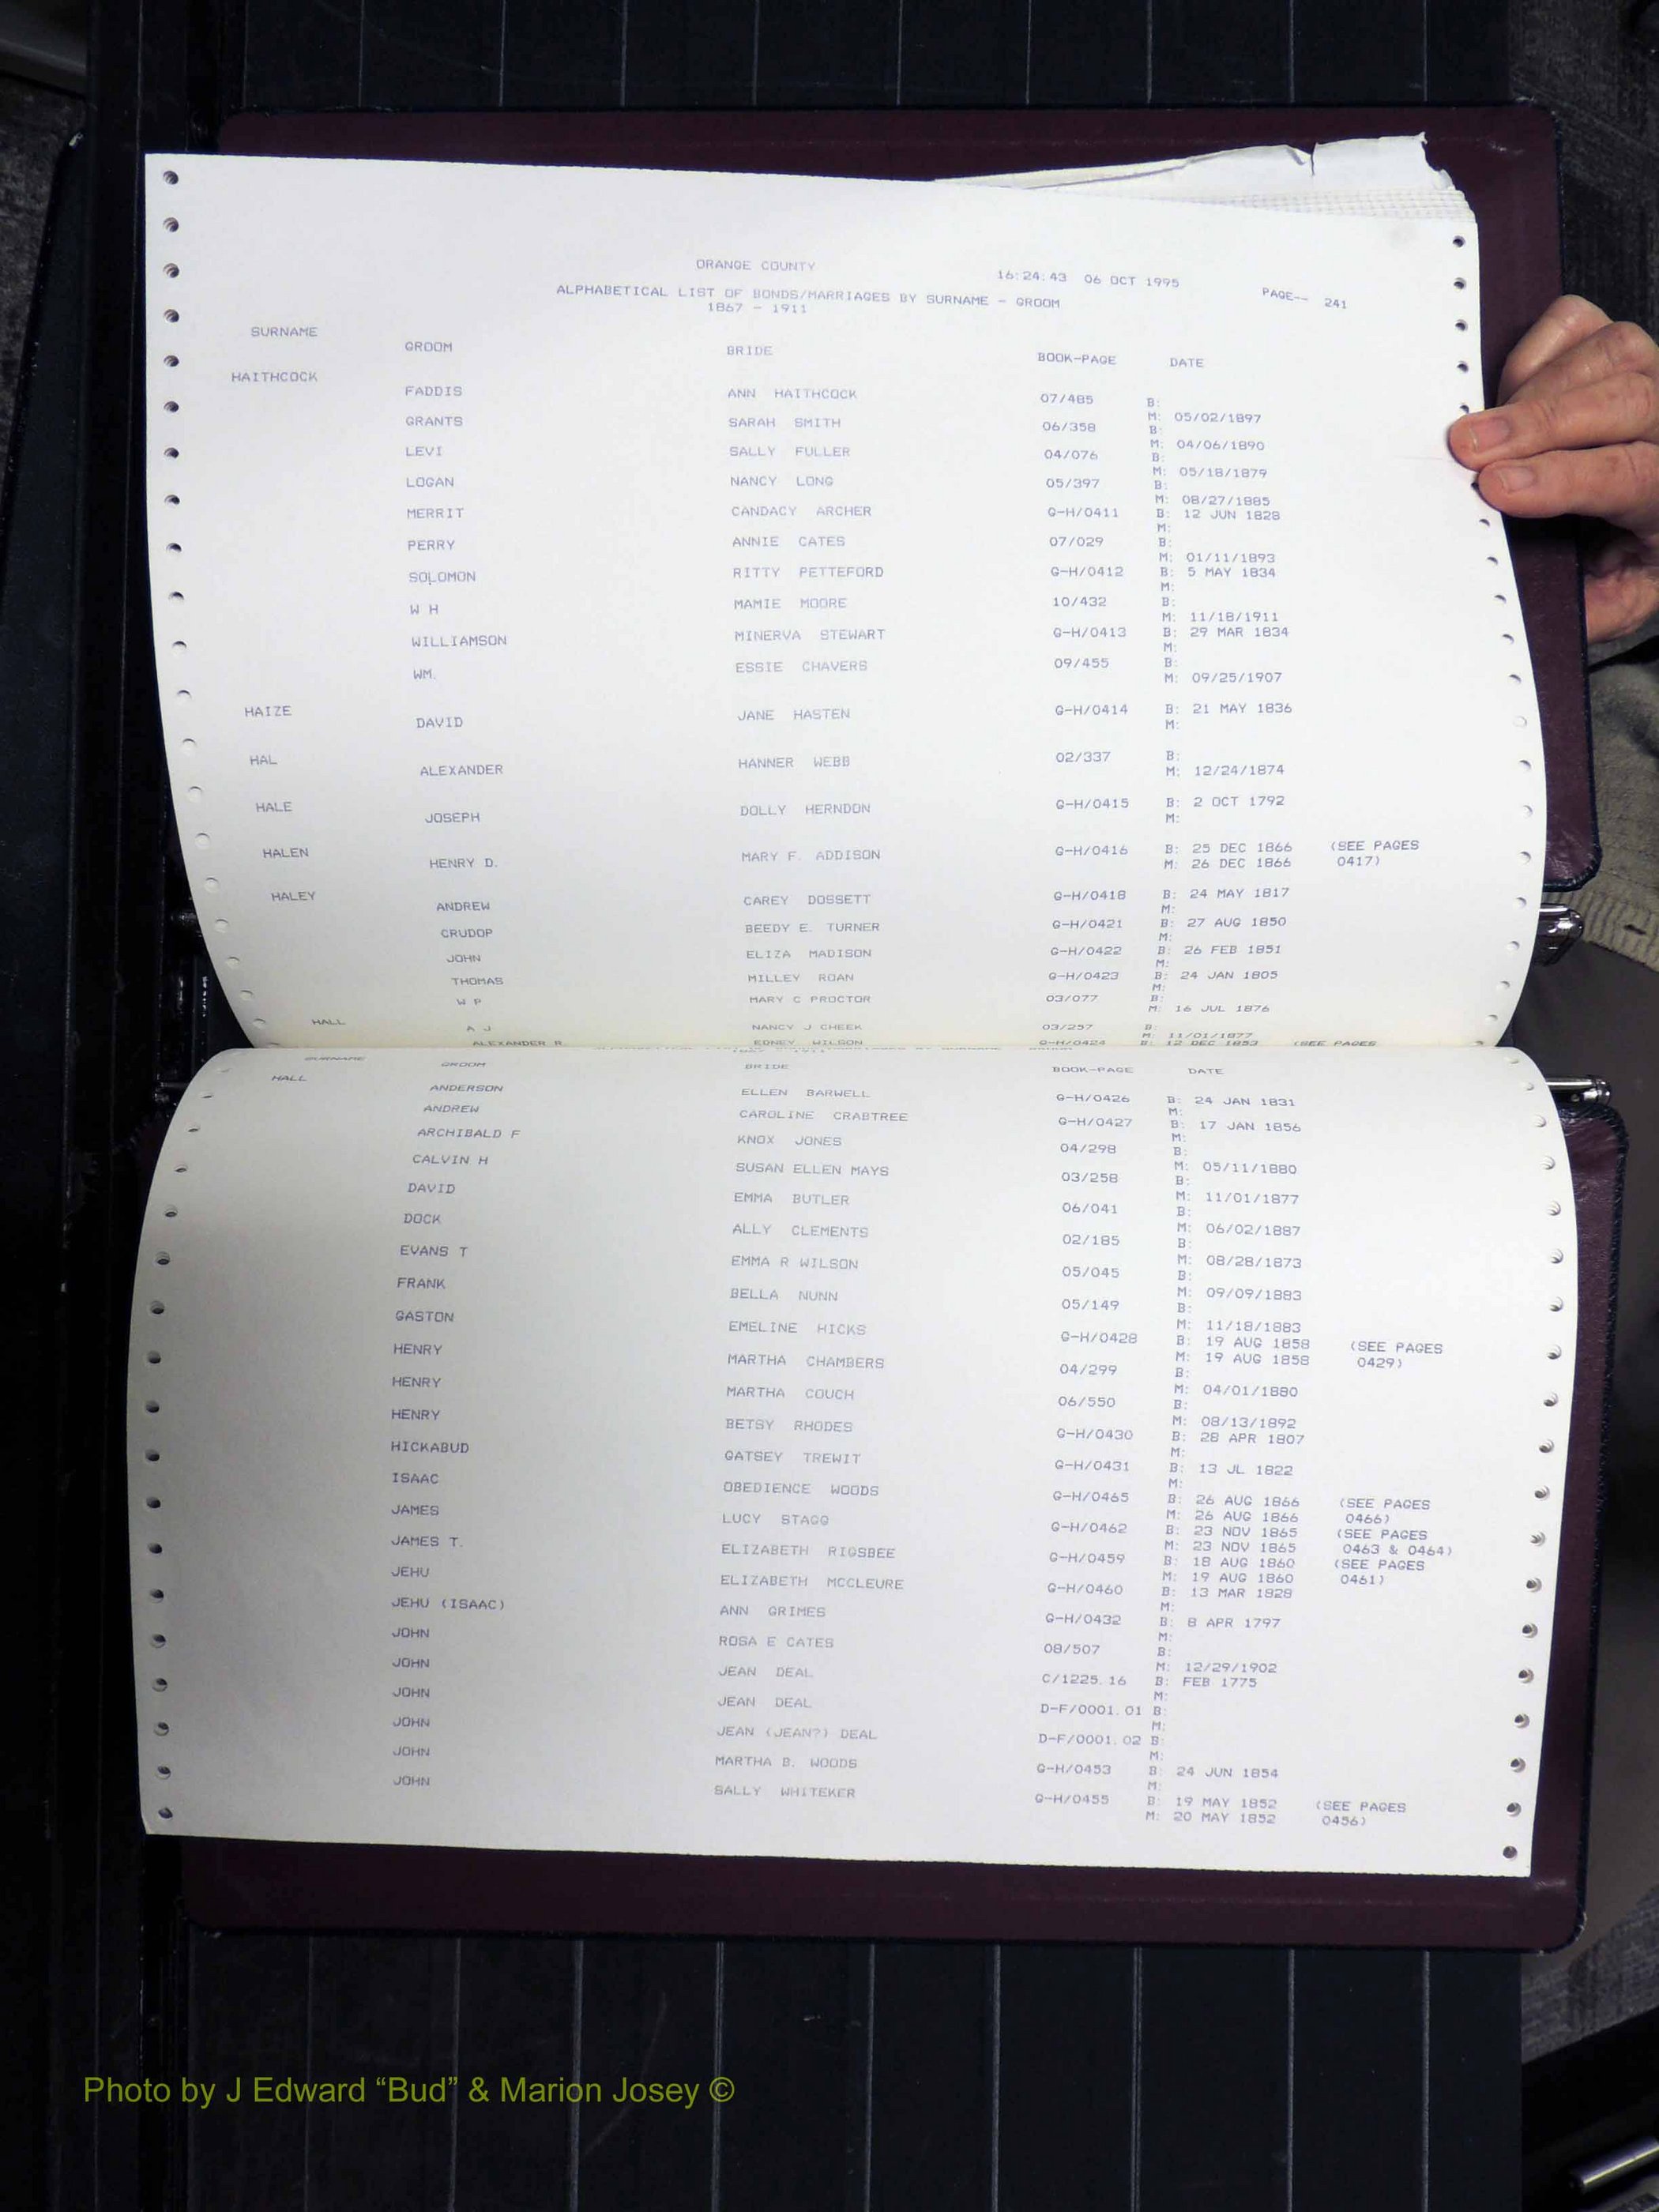 ORANGE COUNTY 16:24:43 06 OCT 1995 PAGE-- 241
ALPHABETICAL LIST OF BONDS/MARRIAGES BY SURNAME - GROOM
1867 - 1911
SURNAME GROOM BRIDE BOOK-PAGE DATE
HAITHCOCK
FADDIS ANN HAITHCOCK 07/485 B:
M: 05/02/1897
GRANTS SARAH SMITH 06/358 B:
M: 04/06/1890
LEVI SALLY FULLER 04/076 B:
M: 05/18/1879
LOGAN NANCY LONG 05/397 B:
M: 08/27/1885
MERRIT CANDACY ARCHER G-H/0411 B: 12 JUN 1828
M:
PERRY ANNIE CATES 07/029 B:
M: 01/11/1893
SOLOMON RITTY PETTEFORD G-H/0412 B: 5 MAY 1834
M:
W H MAMIE MOORE 10/432 B:
M: 11/18/1911
WILLIAMSON MINERVA STEWART G-H/0413 B: 29 MAR 1834
M:
WM. ESSIE CHAVERS 09/455 B:
M: 09/25/1907
HAIZE DAVID JANE HASTEN G-H/0414 B: 21 MAY 1836
M:
HAL ALEXANDER HANNER WEBB 02/337 B:
M: 12/24/1874
HALE JOSEPH DOLLY HERNDON G-H/0415 B: 2 OCT 1792
M:
HALEN HENRY D. MARY F. ADDISON G-H/0416 B: 25 DEC 1866 (SEE PAGES
M: 26 DEC 1866 0417)
HALEY ANDREW CAREY DOSSETT G-H/0418 B: 24 MAY 1817
M:
CRUDOP BEEDY E. TURNER G-H/0421 B: 27 AUG 1850
M:
JOHN ELIZA MADISON G-H/0422 B: 26 FEB 1851
M:
THOMAS MILLEY ROAN G-H/0423 B: 24 JAN 1805
M:
W P MARY C PROCTOR 03/077 B:
M: 16 JUL 1876
HALL A J NANCY J CHEEK 03/257 B:
M: 11/01/1877
ALEXANDER R EDNEY WILSON G-H/0424 B: 12 DEC 1853 (SEE PAGES
SURNAME GROOM BRIDE BOOK-PAGE DATE
HALL
ANDERSON ELLEN BARWELL G-H/0426 B: 24 JAN 1831
M:
ANDREW CAROLINE CRABTREE G-H/0427 B: 17 JAN 1856
M:
ARCHIBALD F KNOX JONES 04/298 B:
M: 05/11/1880
CALVIN H SUSAN ELLEN MAYS 03/258 B:
M: 11/01/1877
DAVID EMMA BUTLER 06/041 B:
M: 06/02/1887
DOCK ALLY CLEMENTS 02/185 B:
M: 08/28/1873
EVANS T EMMA R WILSON 05/045 B:
M: 09/09/1883
FRANK BELLA NUNN 05/149 B:
M: 11/18/1883
GASTON EMELINE HICKS G-H/0428 B: 19 AUG 1858 (SEE PAGES
M: 19 AUG 1858 0429)
HENRY MARTHA CHAMBERS 04/299 B:
M: 04/01/1880
HENRY MARTHA COUCH 06/550 B:
M: 08/13/1892
HENRY BETSY RHODES G-H/0430 B: 28 APR 1807
M:
HICKABUD GATSEY TREWIT G-H/0431 B: 13 JL 1822
M:
ISAAC OBEDIENCE WOODS G-H/0465 B: 26 AUG 1866 (SEE PAGES
M: 26 AUG 1866 0466)
JAMES LUCY STAGG G-H/0462 B: 23 NOV 1865 (SEE PAGES
M: 23 NOV 1865 0463 & 0464)
JAMES T. ELIZABETH RIGSBEE G-H/0459 B: 18 AUG 1860 (SEE PAGES
M: 19 AUG 1860 0461)
JEHU ELIZABETH MCCLEURE G-H/0460 B: 13 MAR 1828
M:
JEHU (ISAAC) ANN GRIMES G-H/0432 B: 8 APR 1797
M:
JOHN ROSA E CATES 08/507 B:
M: 12/29/1902
JOHN JEAN DEAL C/1225.16 B: FEB 1775
M:
JOHN JEAN DEAL D-F/0001.01 B:
M:
JOHN JEAN (JEAN?) DEAL D-F/0001.02 B:
M:
JOHN MARTHA B. WOODS G-H/0453 B: 24 JUN 1854
M:
JOHN SALLY WHITEKER G-H/0455 B: 19 MAY 1852 (SEE PAGES
M: 20 MAY 1852 0456)
Photo by J Edward “Bud” & Marion Josey ©